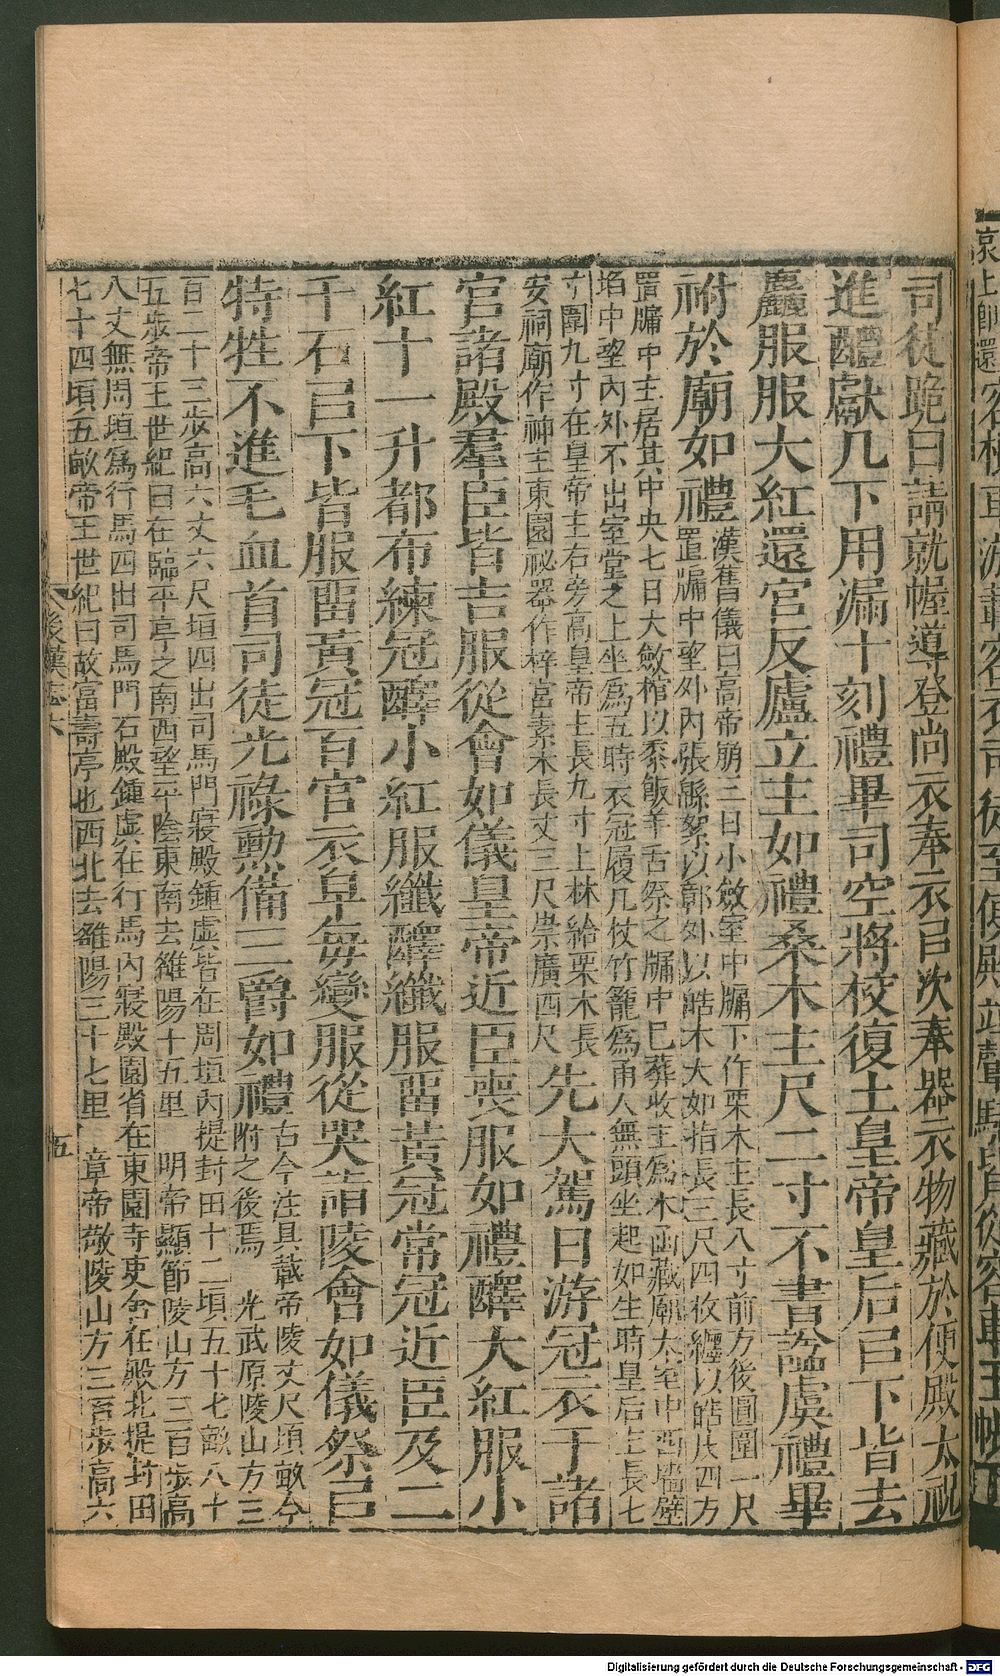 還容根車游載容衣司徒至便殿
司徒跪曰請就幄導登尚衣奉衣㠯次奉器衣物藏於便殿太祝
進醴獻几下用漏十刻禮畢司空將校復土皇帝皇后㠯下皆去
麤服服大紅還宮反廬立主如禮桑木主尺二寸不書謚虞禮畢
祔於廟如禮
漢舊儀曰高帝崩三日小斂室中牖下作栗木主長八寸前方後圓圍一尺
置牖中望外內張緜絮以鄣外以皓木大如指長三尺四枚纏以皓皮四方
置牖中主居其中央七日大斂棺以黍飯羊舌祭之牖中已葬收主爲木函藏廟太室中西牆壁
埳中望內外不出室堂之上坐爲五時衣冠履几杖竹籠爲甬人無頭坐起如生時皇后主長七
寸圍九寸在皇帝主右旁高皇帝主長九寸上林給栗木長
安祠廟作神主東園祕器作梓宮素木長丈三尺崇廣四尺
先大駕日游冠衣于諸
官諸殿羣臣皆吉服從會如儀皇帝近臣喪服如禮醳大紅服小
紅十一升都布練冠醳小紅服纖醳纖服畱黃冠常冠近臣及二
千石㠯下皆服畱黃冠百官衣皁每變服從哭詣陵會如儀祭㠯
特牲不進毛血首司徒光祿勳備三爵如禮
古今注具載帝陵丈尺頃畝今
附之後焉 光武原陵山方三
百二十三步高六丈六尺垣四出司馬門寢殿鍾虡皆在周垣內提封田十二頃五十七畝八十
五步帝王世紀曰在臨平亭之南西望平陰東南去雒陽十五里 明帝顯節陵山方三百步高
八丈無周垣爲行馬四出司馬門石殿鍾虡在行馬內寢殿園省在東園寺吏舍在殿北提封田
七十四頃五畝帝王世紀曰故富壽亭也西北去雒陽三十七里 章帝敬陵山方三百步高六
後漢志六
五
Digitalisierung gefördert durch die Deutsche Forschungsgemeinschaft - DFG